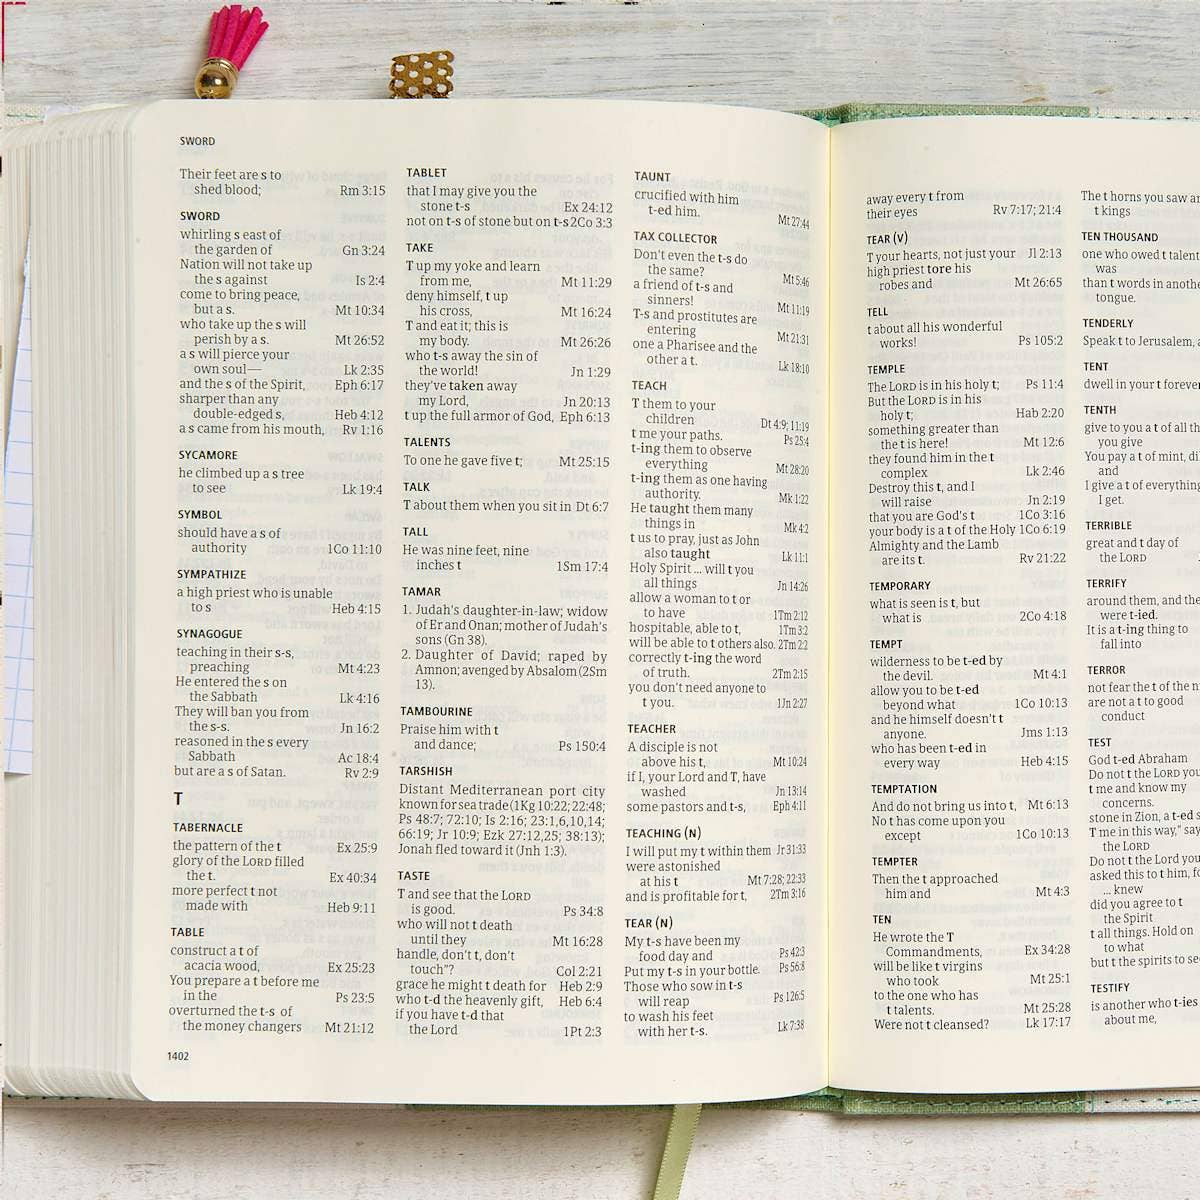 SWORD
Their feet are s to
shed blood; Rm 3:15
SWORD
whirling s east of
the garden of Gn 3:24
Nation will not take up
the s against Is 2:4
come to bring peace,
but a s. Mt 10:34
who take up the s will
perish by a s. Mt 26:52
a s will pierce your
own soul— Lk 2:35
and the s of the Spirit, Eph 6:17
sharper than any
double-edged s, Heb 4:12
a s came from his mouth, Rv 1:16
SYCAMORE
he climbed up a s tree
to see Lk 19:4
SYMBOL
should have a s of
authority 1Co 11:10
SYMPATHIZE
a high priest who is unable
to s Heb 4:15
SYNAGOGUE
teaching in their s-s,
preaching Mt 4:23
He entered the s on
the Sabbath Lk 4:16
They will ban you from
the s-s. Jn 16:2
reasoned in the s every
Sabbath Ac 18:4
but are a s of Satan. Rv 2:9
T
TABERNACLE
the pattern of the t Ex 25:9
glory of the LORD filled
the t. Ex 40:34
more perfect t not
made with Heb 9:11
TABLE
construct a t of
acacia wood, Ex 25:23
You prepare a t before me
in the Ps 23:5
overturned the t-s of
the money changers Mt 21:12
1402
TABLET
that I may give you the
stone t-s Ex 24:12
not on t-s of stone but on t-s 2Co 3:3
TAKE
T up my yoke and learn
from me, Mt 11:29
deny himself, t up
his cross, Mt 16:24
T and eat it; this is
my body. Mt 26:26
who t-s away the sin of
the world! Jn 1:29
they've taken away
my Lord, Jn 20:13
t up the full armor of God, Eph 6:13
TALENTS
To one he gave five t; Mt 25:15
TALK
T about them when you sit in Dt 6:7
TALL
He was nine feet, nine
inches t 1Sm 17:4
TAMAR
1. Judah's daughter-in-law; widow
of Er and Onan; mother of Judah's
sons (Gn 38).
2. Daughter of David; raped by
Amnon; avenged by Absalom (2Sm
13).
TAMBOURINE
Praise him with t
and dance; Ps 150:4
TARSHISH
Distant Mediterranean port city
known for sea trade (1Kg 10:22; 22:48;
Ps 48:7; 72:10; Is 2:16; 23:1,6,10,14;
66:19; Jr 10:9; Ezk 27:12,25; 38:13);
Jonah fled toward it (Jnh 1:3).
TASTE
T and see that the LORD
is good. Ps 34:8
who will not t death
until they Mt 16:28
handle, don't t, don't
touch"? Col 2:21
grace he might t death for Heb 2:9
who t-d the heavenly gift, Heb 6:4
if you have t-d that
the Lord 1Pt 2:3
TAUNT
crucified with him
t-ed him. Mt 27:44
TAX COLLECTOR
Don't even the t-s do
the same? Mt 5:46
a friend of t-s and
sinners! Mt 11:19
T-s and prostitutes are
entering Mt 21:31
one a Pharisee and the
other a t. Lk 18:10
TEACH
T them to your
children Dt 4:9; 11:19
t me your paths. Ps 25:4
t-ing them to observe
everything Mt 28:20
t-ing them as one having
authority. Mk 1:22
He taught them many
things in Mk 4:2
t us to pray, just as John
also taught Lk 11:1
Holy Spirit ... will t you
all things Jn 14:26
allow a woman to t or
to have 1Tm 2:12
hospitable, able to t, 1Tm 3:2
will be able to t others also. 2Tm 2:2
correctly t-ing the word
of truth. 2Tm 2:15
you don't need anyone to
t you. 1Jn 2:27
TEACHER
A disciple is not
above his t, Mt 10:24
if I, your Lord and T, have
washed Jn 13:14
some pastors and t-s, Eph 4:11
TEACHING (N)
I will put my t within them Jr 31:33
were astonished
at his t Mt 7:28; 22:33
and is profitable for t, 2Tm 3:16
TEAR (N)
My t-s have been my
food day and Ps 42:3
Put my t-s in your bottle. Ps 56:8
Those who sow in t-s
will reap Ps 126:5
to wash his feet
with her t-s. Lk 7:38
away every t from
their eyes Rv 7:17; 21:4
TEAR (V)
T your hearts, not just your Jl 2:13
high priest tore his
robes and Mt 26:65
TELL
t about all his wonderful
works! Ps 105:2
TEMPLE
The LORD is in his holy t; Ps 11:4
But the LORD is in his
holy t; Hab 2:20
something greater than
the t is here! Mt 12:6
they found him in the t
complex Lk 2:46
Destroy this t, and I
will raise Jn 2:19
that you are God's t 1Co 3:16
your body is a t of the Holy 1Co 6:19
Almighty and the Lamb
are its t. Rv 21:22
TEMPORARY
what is seen is t, but
what is 2Co 4:18
TEMPT
wilderness to be t-ed by
the devil. Mt 4:1
allow you to be t-ed
beyond what 1Co 10:13
and he himself doesn't t
anyone. Jms 1:13
who has been t-ed in
every way Heb 4:15
TEMPTATION
And do not bring us into t, Mt 6:13
No t has come upon you
except 1Co 10:13
TEMPTER
Then the t approached
him and Mt 4:3
TEN
He wrote the T
Commandments, Ex 34:28
will be like t virgins
who took Mt 25:1
to the one who has
t talents. Mt 25:28
Were not t cleansed? Lk 17:17
The t horns you saw
t kings
TEN THOUSAND
one who owed t talent
was
than t words in
tongue.
TENDERLY
Speak t to Jerusalem,
TENT
dwell in your t forever
TENTH
give to you a t of all
you give
You pay a t of mint,
and
I give a t of everything
I get.
TERRIBLE
great and t day of
the LORD
TERRIFY
around them, and
were t-ied.
It is a t-ing thing to
fall into
TERROR
not fear the t of the
are not a t to good
conduct
TEST
God t-ed Abraham
Do not t the LORD you
t me and know my
concerns.
stone in Zion, a t-ed
T me in this way," say
the LORD
Do not t the Lord you
asked this to t him,
... knew
did you agree to t
the Spirit
t all things. Hold on
to what
but t the spirits to see
TESTIFY
is another who t-ies
about me,